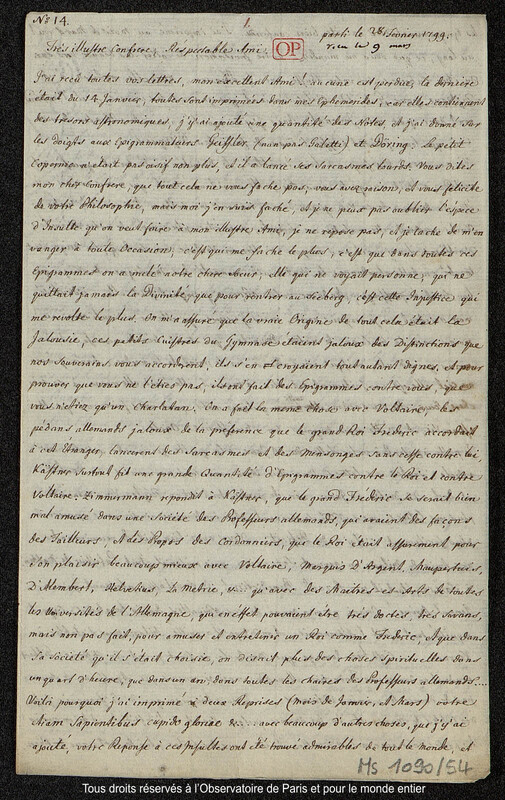 N° 14.
1.
parti le 28 fevrier 1799.
reçu le 9 mars
Très illustre Confrere, Respectable Ami.
OP
J'ai reçu toutes vos lettres, mon excellent Ami! aucune est perdue, la derniere
était du 14 Janvier, toutes sont imprimées dans mes Ephémerides, car elles contiennent
des tresors astronomiques, j'y ai ajouté une quantité des Notes, et j'ai donné sur
les doigts aux Epigrammataires Geissler, (non pas Galetti) et Döring; le petit
Copernic n'était pas oisif non plus, et il a lancé ses sarcasmes lourds. Vous dites
mon cher Confrere, que tout cela ne vous fache pas, vous avez raison, et vous felicite
de votre Philosophie, mais moi j'en suis faché, et je ne peux pas oublier l'espece
d'Insulte qu'on veut faire à mon illustre Ami, je ne repose pas, et je tache de m'en
vanger à toute Occasion; c'est qui me fache le plus, c'est que dans toutes ces
Epigrammes on a melé notre chere Soeur, elle qui ne voyait personne, qui ne
quittait jamais la Divinité, que pour rentrer au Seeberg, c'est cette Injustice qui
me revolte le plus. On m'a assuré que la vraie Origine de tout cela était la
Jalousie, ces petits Cuistres du Gymnase étaient jaloux des Distinctions que
nos souverains vous accordaient, ils s'en croyaient tout autant dignes, et pour
prouver que vous ne l'étiez pas, ils ont fait des Epigrammes contre vous, que
vous n'étiez qu'un Charlatan. On a fait la meme chose avec Voltaire, les
pédans allemands jaloux de la preference que le grand Roi Frederic accordait
à cet Etranger, lancerent des Sarcasmes et des Mensonges sans cesse contre lui
Kästner surtout fit une grande Quantité d'Epigrammes contre le Roi et contre
Voltaire; Zimmermann repondit à Kästner, que le grand Frederic se serait bien
mal amusé dans une société des Professeurs allemands, qui avaient des façons
des Tailleurs, et des Propos des Cordonniers, que le Roi était assurement pour
son plaisir beaucoup mieux avec Voltaire, Marquis D'Argent, Maupertuis,
D'Alembert, Helvetius, La Metrie, qu'avec des Maitres es Arts de toutes
les Universités de l'Allemagne, qui en effet pouvaient être très doctes, très savans,
mais non pas fait, pour amuser et entretenir un Roi comme Frederic, et que dans
la société qu'il s'était choisie, on disait plus des choses spirituelles dans
un quart d'heure, que dans un an, dans toutes les chaires des Professeurs allemands....
Voilà pourquoi j'ai imprimé à deux Reprises (mois de Janvier, et Mars) votre
etiam Sapientibus cupido gloriae &c... avec beaucoup d'autres choses, que j'y ai
ajouté, votre Reponse à ces insultes ont été trouvé admirables de tout le monde, et
Ms 1090/54
Tous droits réservés à l'Observatoire de Paris et pour le monde entier